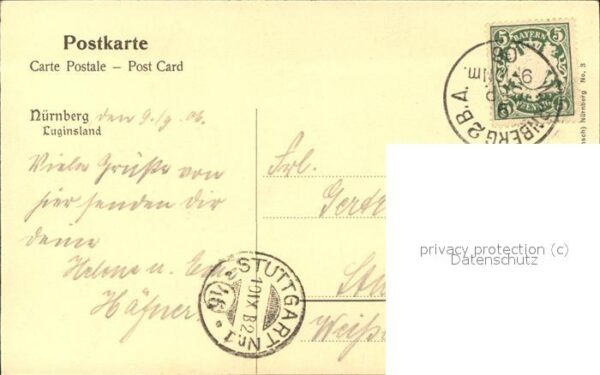 Postkarte
Carte Postale – Post Card
Nürnberg den 9./9. 06.
Luginsland
Viele Grüße von
hier senden Dir
deine
Helene u.
Häfner.
Frl.
Stu
Weiß
5 BAYERN 5
PFENNIG
NBERG 2 B.A.
STUTTGART Nr. 1
10 IX
Nürnberg No. 3
privacy protection (c)
Datenschutz